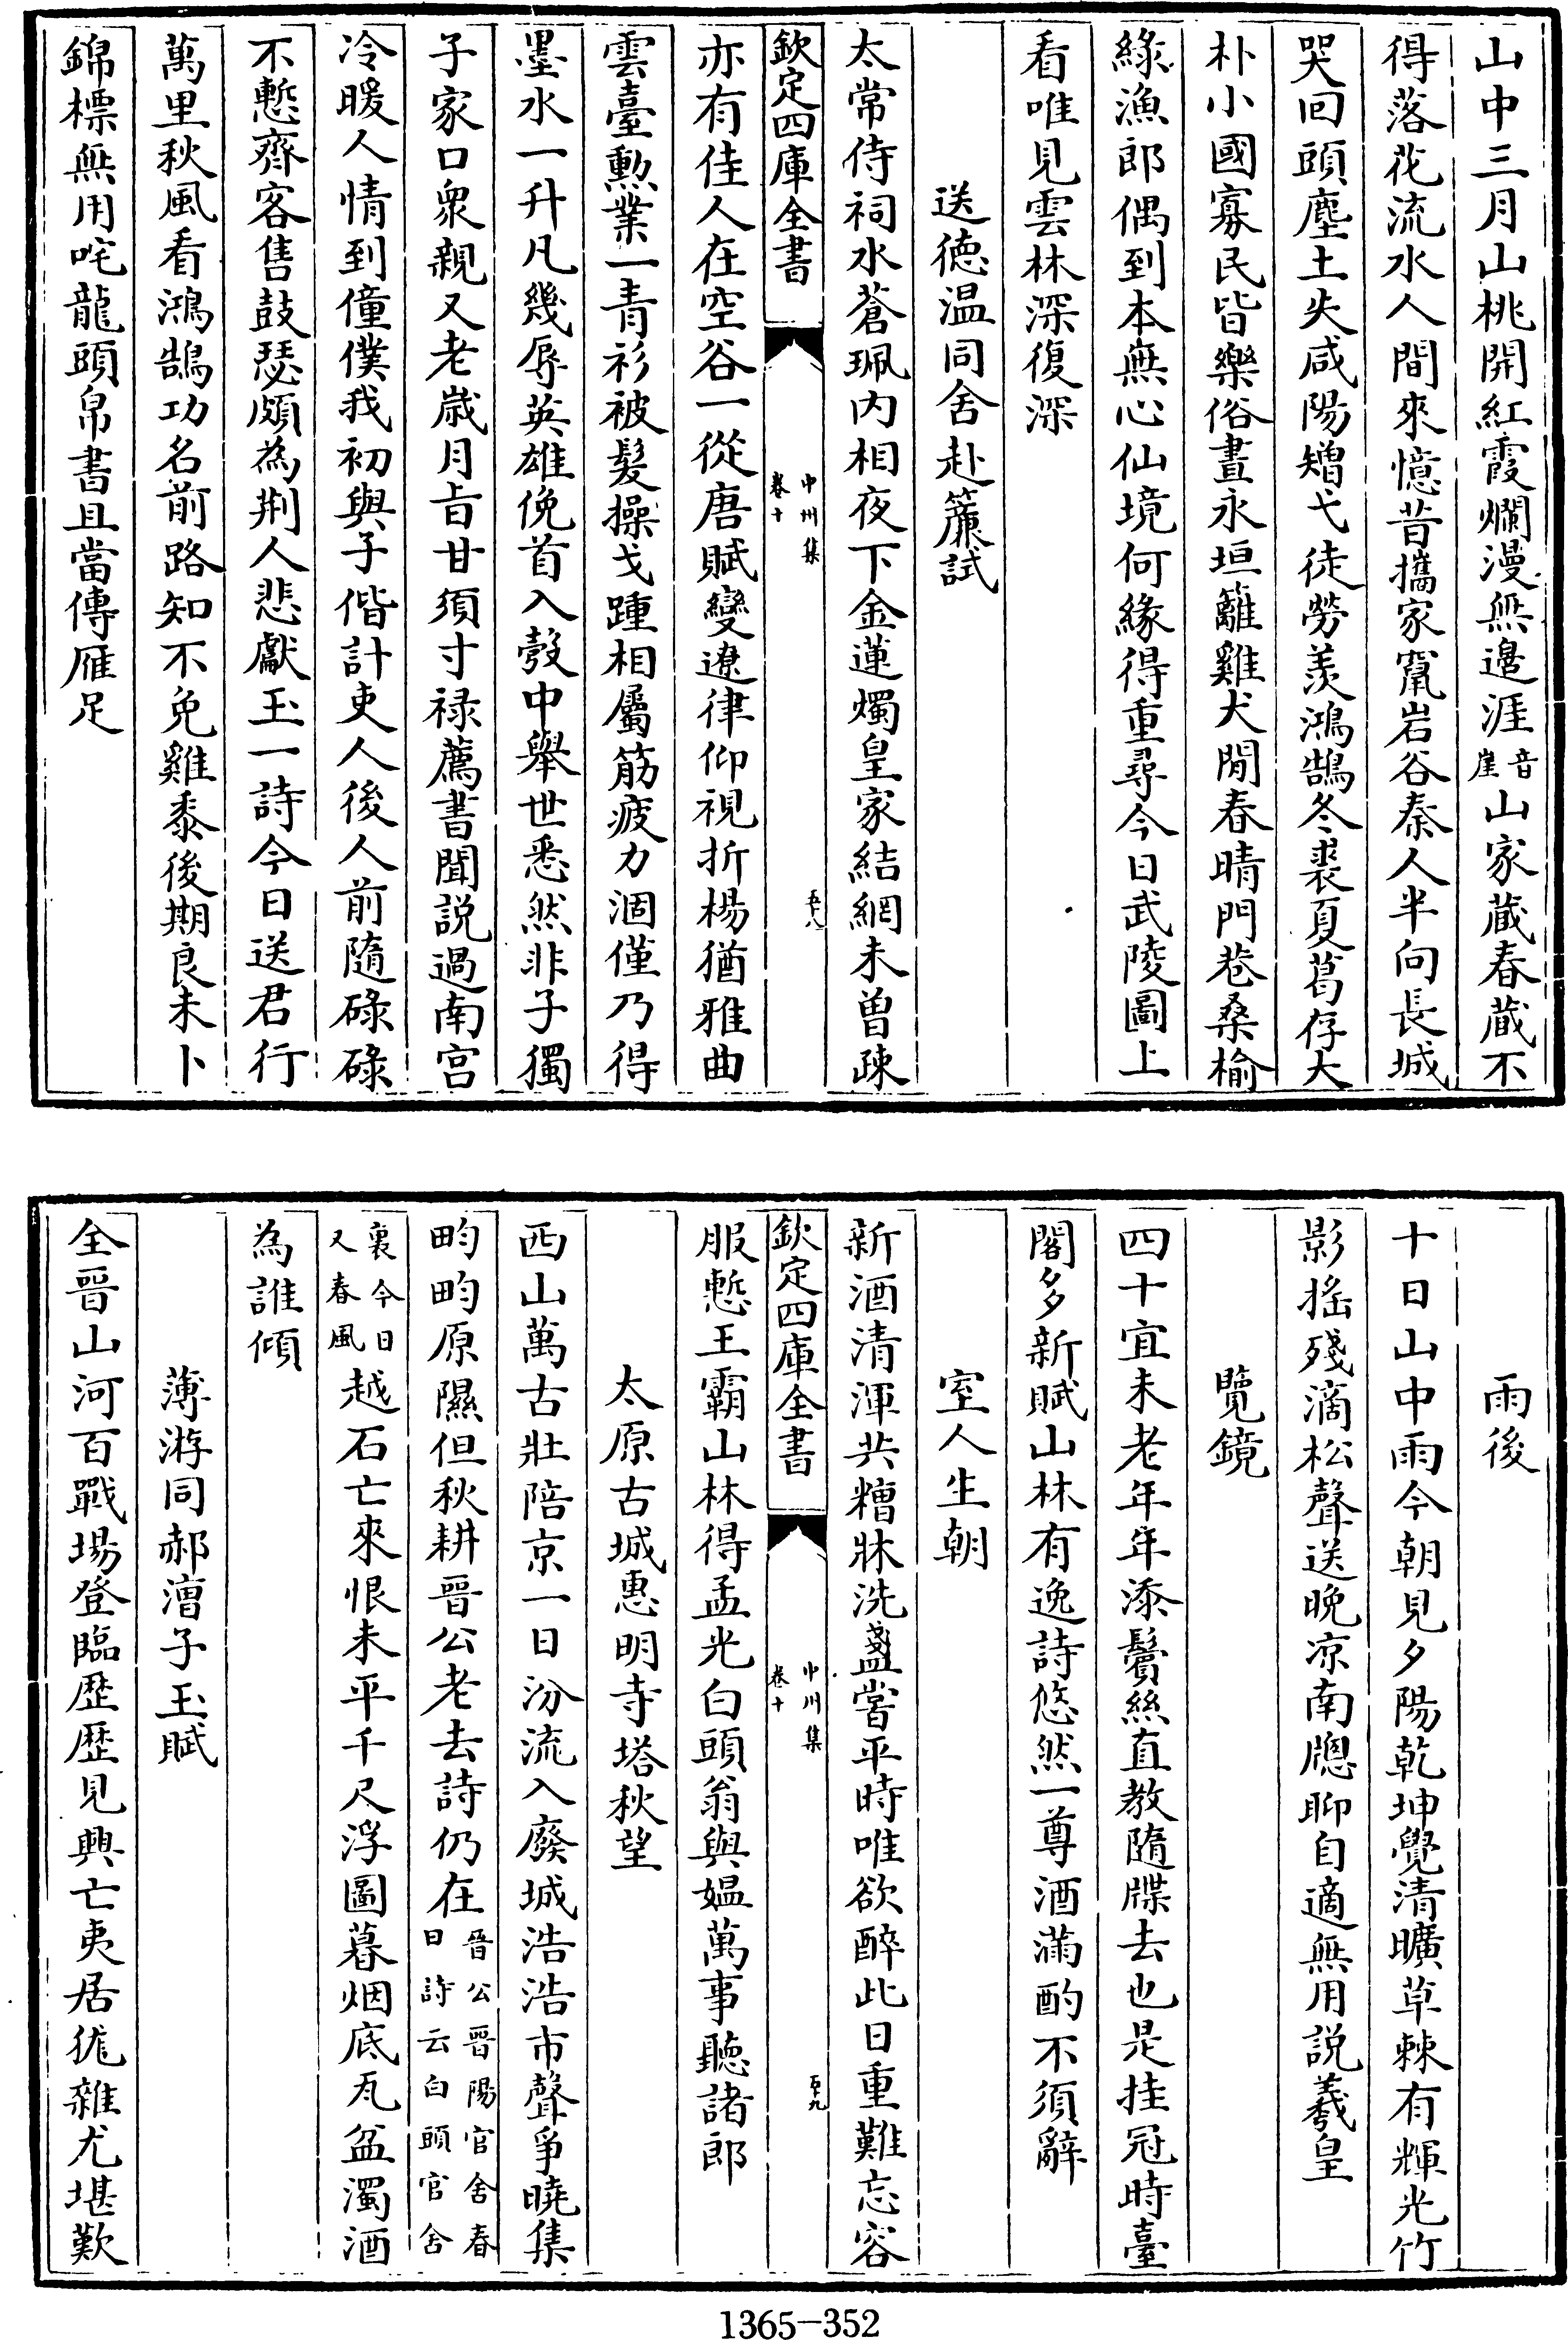 山中三月山桃開紅霞爛漫無邉涯音崖山家蔵春蔵不
得落花流水人間來憶昔攜家竄岩谷秦人半向長城
哭回頭塵土失咸陽矰弋徒勞羡鴻鵠冬裘夏葛存大
朴小國寡民皆樂俗晝永垣籬雞犬閒春晴門巷桑榆
緑漁郎偶到本無心仙境何緣得重尋今日武陵圖上
看唯見雲林深復深
送德温同舍赴簾試
太常侍祠水蒼珮内相夜下金蓮燭皇家結網未曽疎
欽定四庫全書
中州集
卷十
五十八
亦有佳人在空谷一從唐賦變遼律仰視折楊猶雅曲
雲臺勲業一青衫被髮操戈踵相屬筋疲力涸僅乃得
墨水一升凡幾辱英雄俛首入彀中舉世悉然非子獨
子家口衆親又老嵗月㫖甘須寸禄薦書聞説過南宫
冷暖人情到僮僕我初與子偕計吏人後人前隨碌碌
不慙齊客售鼓瑟頗為荆人悲獻玉一詩今日送君行
萬里秋風看鴻鵠功名前路知不免雞黍後期良未卜
錦標無用咤龍頭帛書且當傳雁足
雨後
十日山中雨今朝見夕陽乾坤覺清曠草棘有輝光竹
影揺殘滴松聲送晚凉南牕聊自適無用説羲皇
覽鏡
四十宜未老年年添鬢絲直教隨牒去也是挂冠時臺
閣多新賦山林有逸詩悠然一尊酒滿酌不須辭
室人生朝
新酒清渾共糟牀洗盞嘗平時唯欲醉此日重難忘容
欽定四庫全書
中州集
卷十
五十九
服慙王霸山林得孟光白頭翁與媪萬事聽諸郎
太原古城惠明寺塔秋望
西山萬古壯陪京一日汾流入廢城浩浩市聲爭曉集
畇畇原隰但秋耕晉公老去詩仍在晉公晉陽官舍春日詩云白頭官舍
裏今日又春風越石亡來恨未平千尺浮圖暮烟底瓦盆濁酒
為誰傾
薄游同郝漕子玉賦
全晉山河百戰場登臨歴歴見興亡夷居狵雜尤堪歎
1365-352